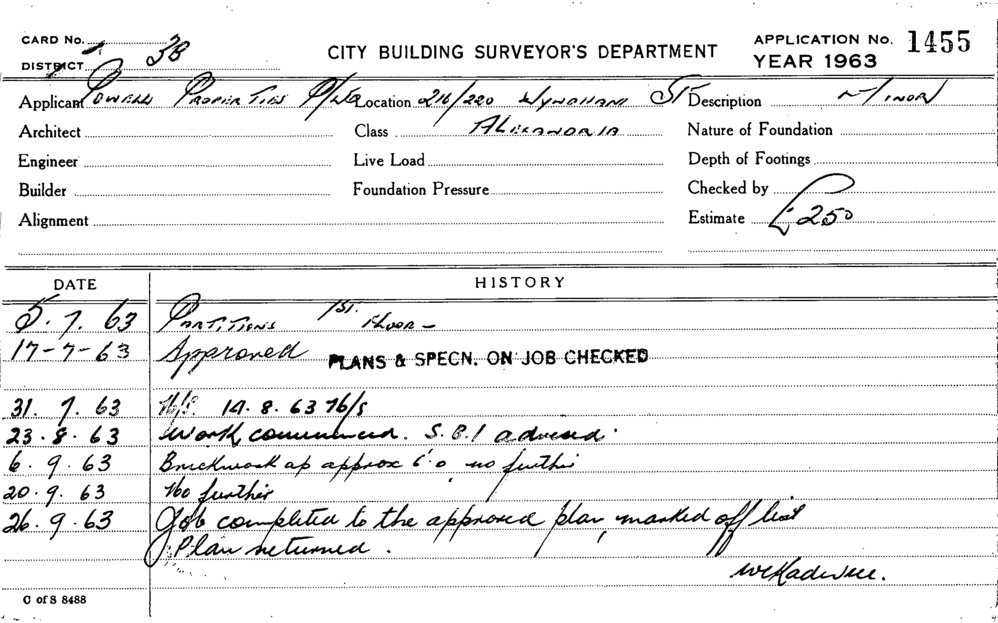 CARD No.
DISTRICT 3B
CITY BUILDING SURVEYOR'S DEPARTMENT
APPLICATION No. 1455
YEAR 1963
Applicant Powell Properties P/L Location 216/220 Wyndham St Description Minor
Architect Class Alexandria Nature of Foundation
Engineer Live Load Depth of Footings
Builder Foundation Pressure Checked by
Alignment Estimate £250
DATE HISTORY
5.7.63 Partitions 1st. Floor -
17-7-63 Approved PLANS & SPECN. ON JOB CHECKED
31.7.63 N/S. 14.8.63 N/S
23.8.63 Work commenced. S.B.I advised.
6.9.63 Brickwork up approx 6'0 no further
20.9.63 No further
26.9.63 Job completed to the approved plan, marked off list
Plan returned.
C of S 8488